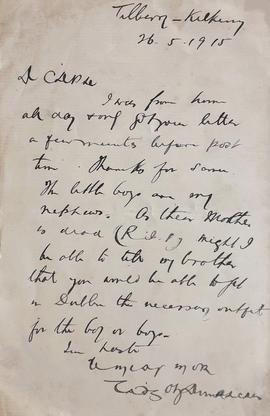 Tilberry - Kilkenny
26.5.1915
I was from home
all day & only got your letter
a few minutes before post
time. Thanks for same.
The little boys are my
nephews. As their Mother
is dead (R.I.P.) might I
be able to tell my brother
that you would be able to get
in Dublin the necessary outfit
for the boy or boys.
In haste